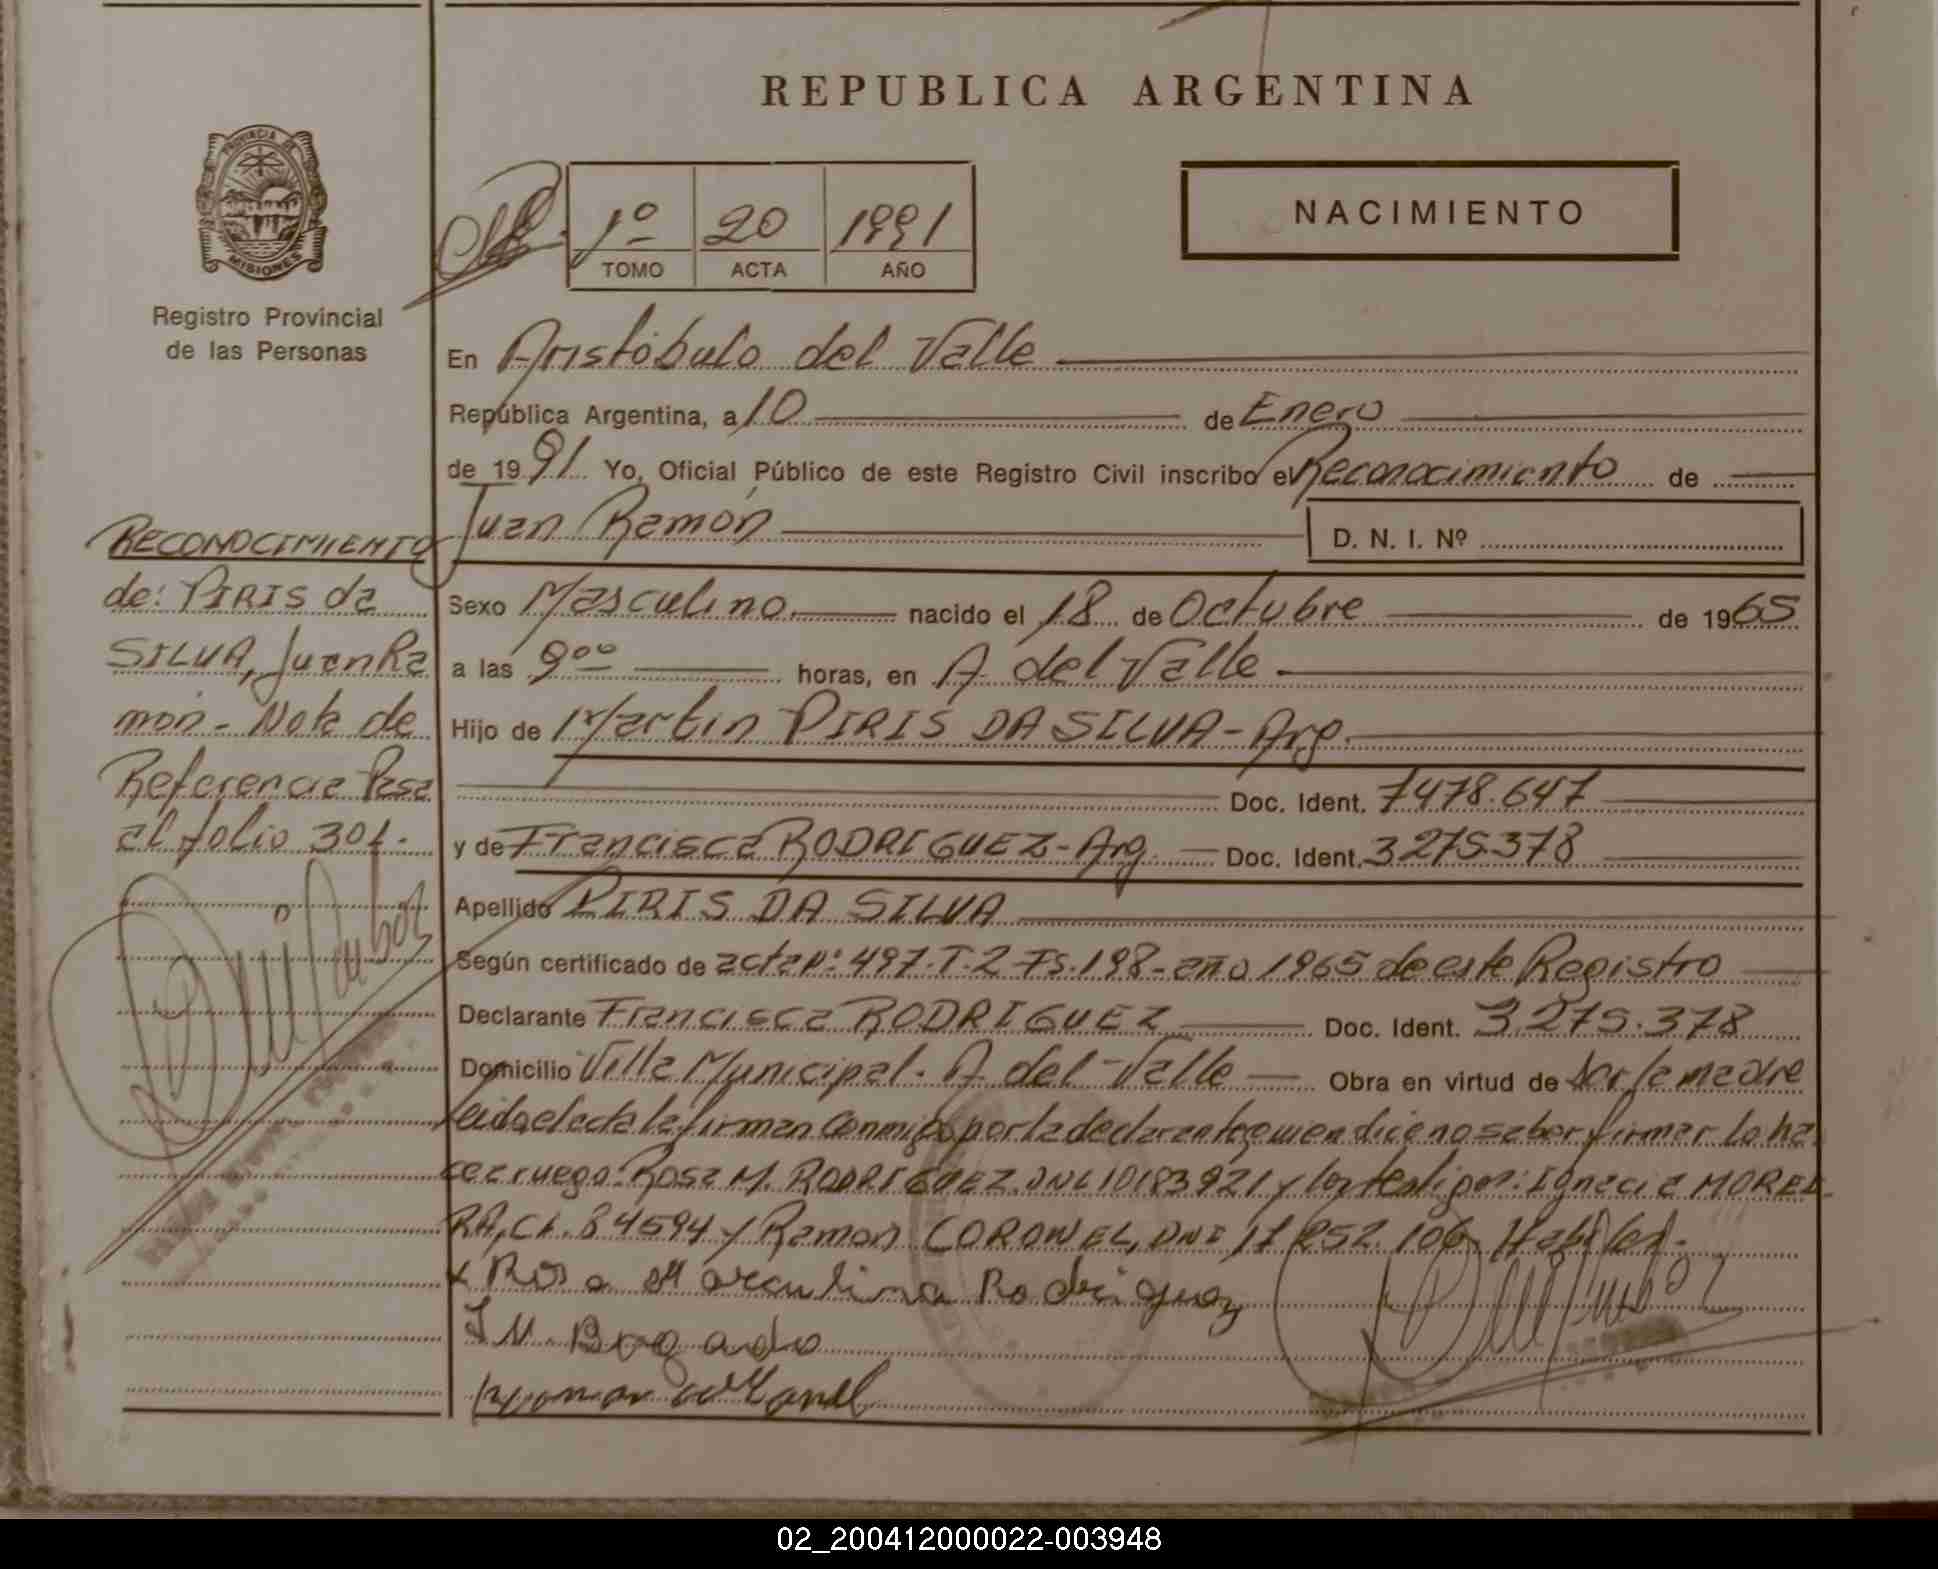 REPUBLICA ARGENTINA
PROVINCIA DE
MISIONES
Registro Provincial
de las Personas
1º 20 1991
TOMO ACTA AÑO
NACIMIENTO
En Aristóbulo del Valle
República Argentina, a 10 de Enero
de 1991 Yo, Oficial Público de este Registro Civil inscribo el Reconocimiento de
Juan Ramón
D. N. I. Nº
RECONOCIMIENTO
de: PIRIS da
SILVA, Juan Ra
món - Nota de
Referencia Pasa
al folio 301.
Sexo Masculino nacido el 18 de Octubre de 1965
a las 9ºº horas, en A. del Valle
Hijo de Martin PIRIS DA SILVA - Arg.
Doc. Ident. 7478.647
y de Francisca RODRIGUEZ - Arg. Doc. Ident. 3275.378
Apellido PIRIS DA SILVA
Según certificado de acta Nº 497. T. 2 Fs. 198 - año 1965 de este Registro
Declarante Francisca RODRIGUEZ Doc. Ident. 3.275.378
Domicilio Villa Municipal. A. del Valle Obra en virtud de Ser la madre
leida el acta la firman Conmigo por la declarante quien dice no saber firmar lo ha
ce a ruego: Rosa M. RODRIGUEZ. DNI 10183921 y los testigos: Ignacia MOREI
RA, CI. 84594 y Ramon CORONEL, DNI 106 Habiles.
x Rosa Marculina Rodriguez
I M. Bogado
02_200412000022-003948